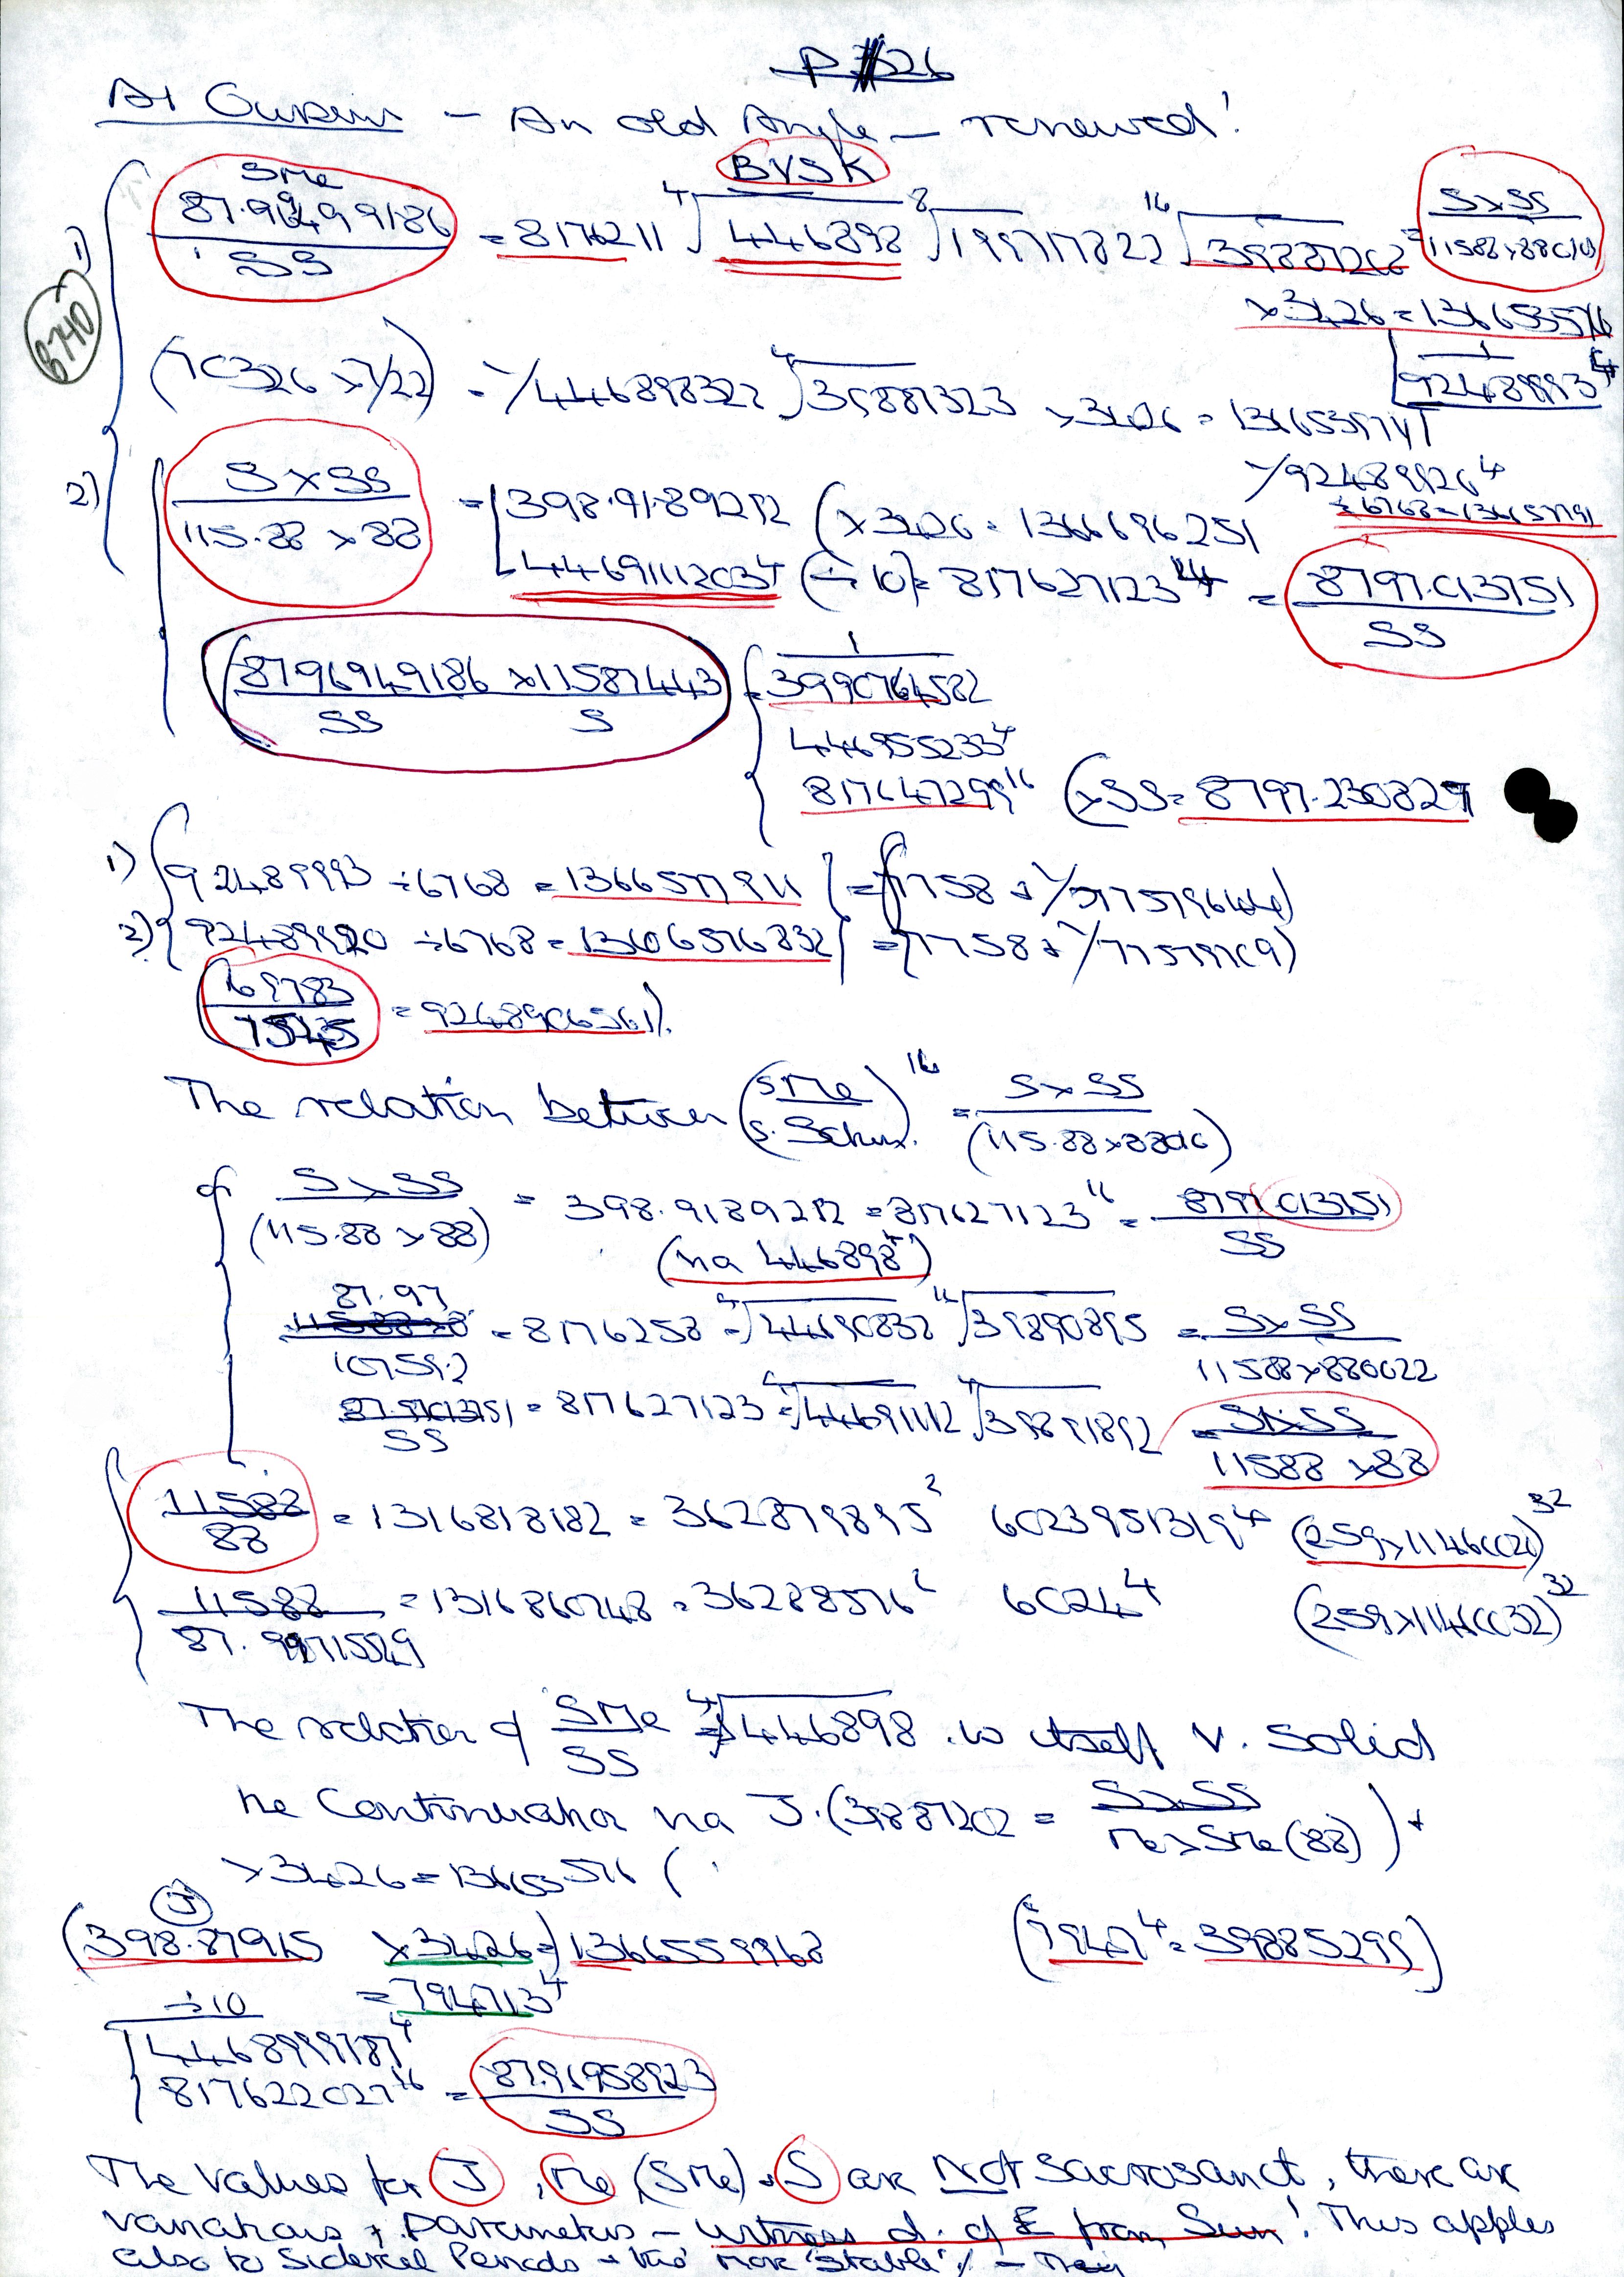 P 326
At Gudein - An old Angle - renewed!
BVSK
1) SMe 87.96949186 / SS = 8176211 ⁴√446898 ⁸√199717822 ¹⁶√39887202 = S×SS / 11588×88010
8740
×3426 = 136653576
(10326 × 7/22) = 1/446898322 ⁴√39887323 ×3426 = 1366539741
1 / 92489993⁴
1/92489926⁴
2) S×SS / 115.88 × 88 = 398.9189212 (×3426 = 1366696251
÷6768 = 136657791
4469111203⁴ (÷10) = 817627123¹⁴ = 8797.013751 / SS
(8796949186 × 11587443 / SS S) = 1 / 3990764582
446955233⁴
817647299¹⁶ (×SS = 8797.230829
1) 92489993 ÷6768 = 1366577911 = (7758 + 1/77579644)
2) 92489920 ÷6768 = 1366576832 = (7758 + 1/77579709)
(69783 / 75435 = 9248906561).
The relation between (SMe / S. Schum.)¹⁶ = S×SS / (115.88×88016)
of S×SS / (115.88×88) = 398.9189212 = 817627123¹⁶ = 8797.013751 / SS
(na 446898⁴)
87.97 / 10759.2 = 8176258 = ⁴√44690832 ¹⁶√39890895 = S×SS / 11588×880022
87.97013751 / SS = 817627123 = ⁴√44691112 ⁴√39891892 = S×SS / 11588 ×88
11588 / 88 = 1316818182 = 362879895² 6023951319⁴ (259×1146002)³²
11588 / 87.99715529 = 1316860748 = 36288576² 6024⁴ (259×11460032)³²
The relation of SMe / SS = ⁴√446898 is itself v. solid
he Continuation na J. (39887202 = S×SS / Me×SMe(88)) +
×3426 = 13665576 (
J
(398.87915 ×3426=) 1366559968 (7947⁴ = 39885299)
÷10 = 794713⁴
4468999787⁴
817622027¹⁶ = 87.96958923 / SS
The values for J, Me (SMe) + S are Not sacrosanct, there are
variations + parameters - witness d. of E from Sun! This applies
also to Sidereal Periods - tho' more 'stable'! - They